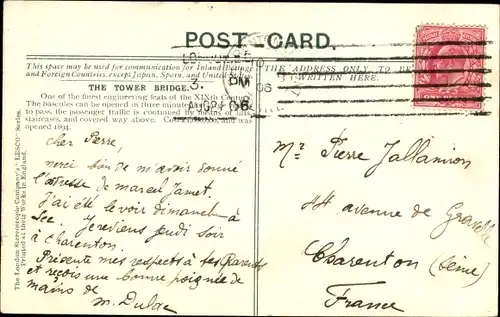 POST-CARD.
This space may be used for communication for Inland Postage
and Foreign Countries, except Japan, Spain, and United States.
THE ADDRESS ONLY TO BE
WRITTEN HERE.
THE TOWER BRIDGE.
One of the finest engineering feats of the XIXth Century.
The bascules can be opened in three minutes
to pass, the passenger traffic is continued by means of lifts,
staircases, and covered way above. and was
opened 1894.
3. PM
AUG 24 06
06
ONE PENNY
The London Stereoscopic Company's "LESCO" Series.
Printed at their Works in England.
cher Pierre,
merci bien de m'avoir donné
l'adresse de marcel Janet.
J'ai été le voir dimanche à
Lee. Je reviens jeudi soir
à Charenton.
Présente mes respects à tes Parents
et reçois une bonne poignée de
mains de
m. Dulac
Mr Pierre Jallamion
44 avenue de Gravelle
Charenton (Seine)
France